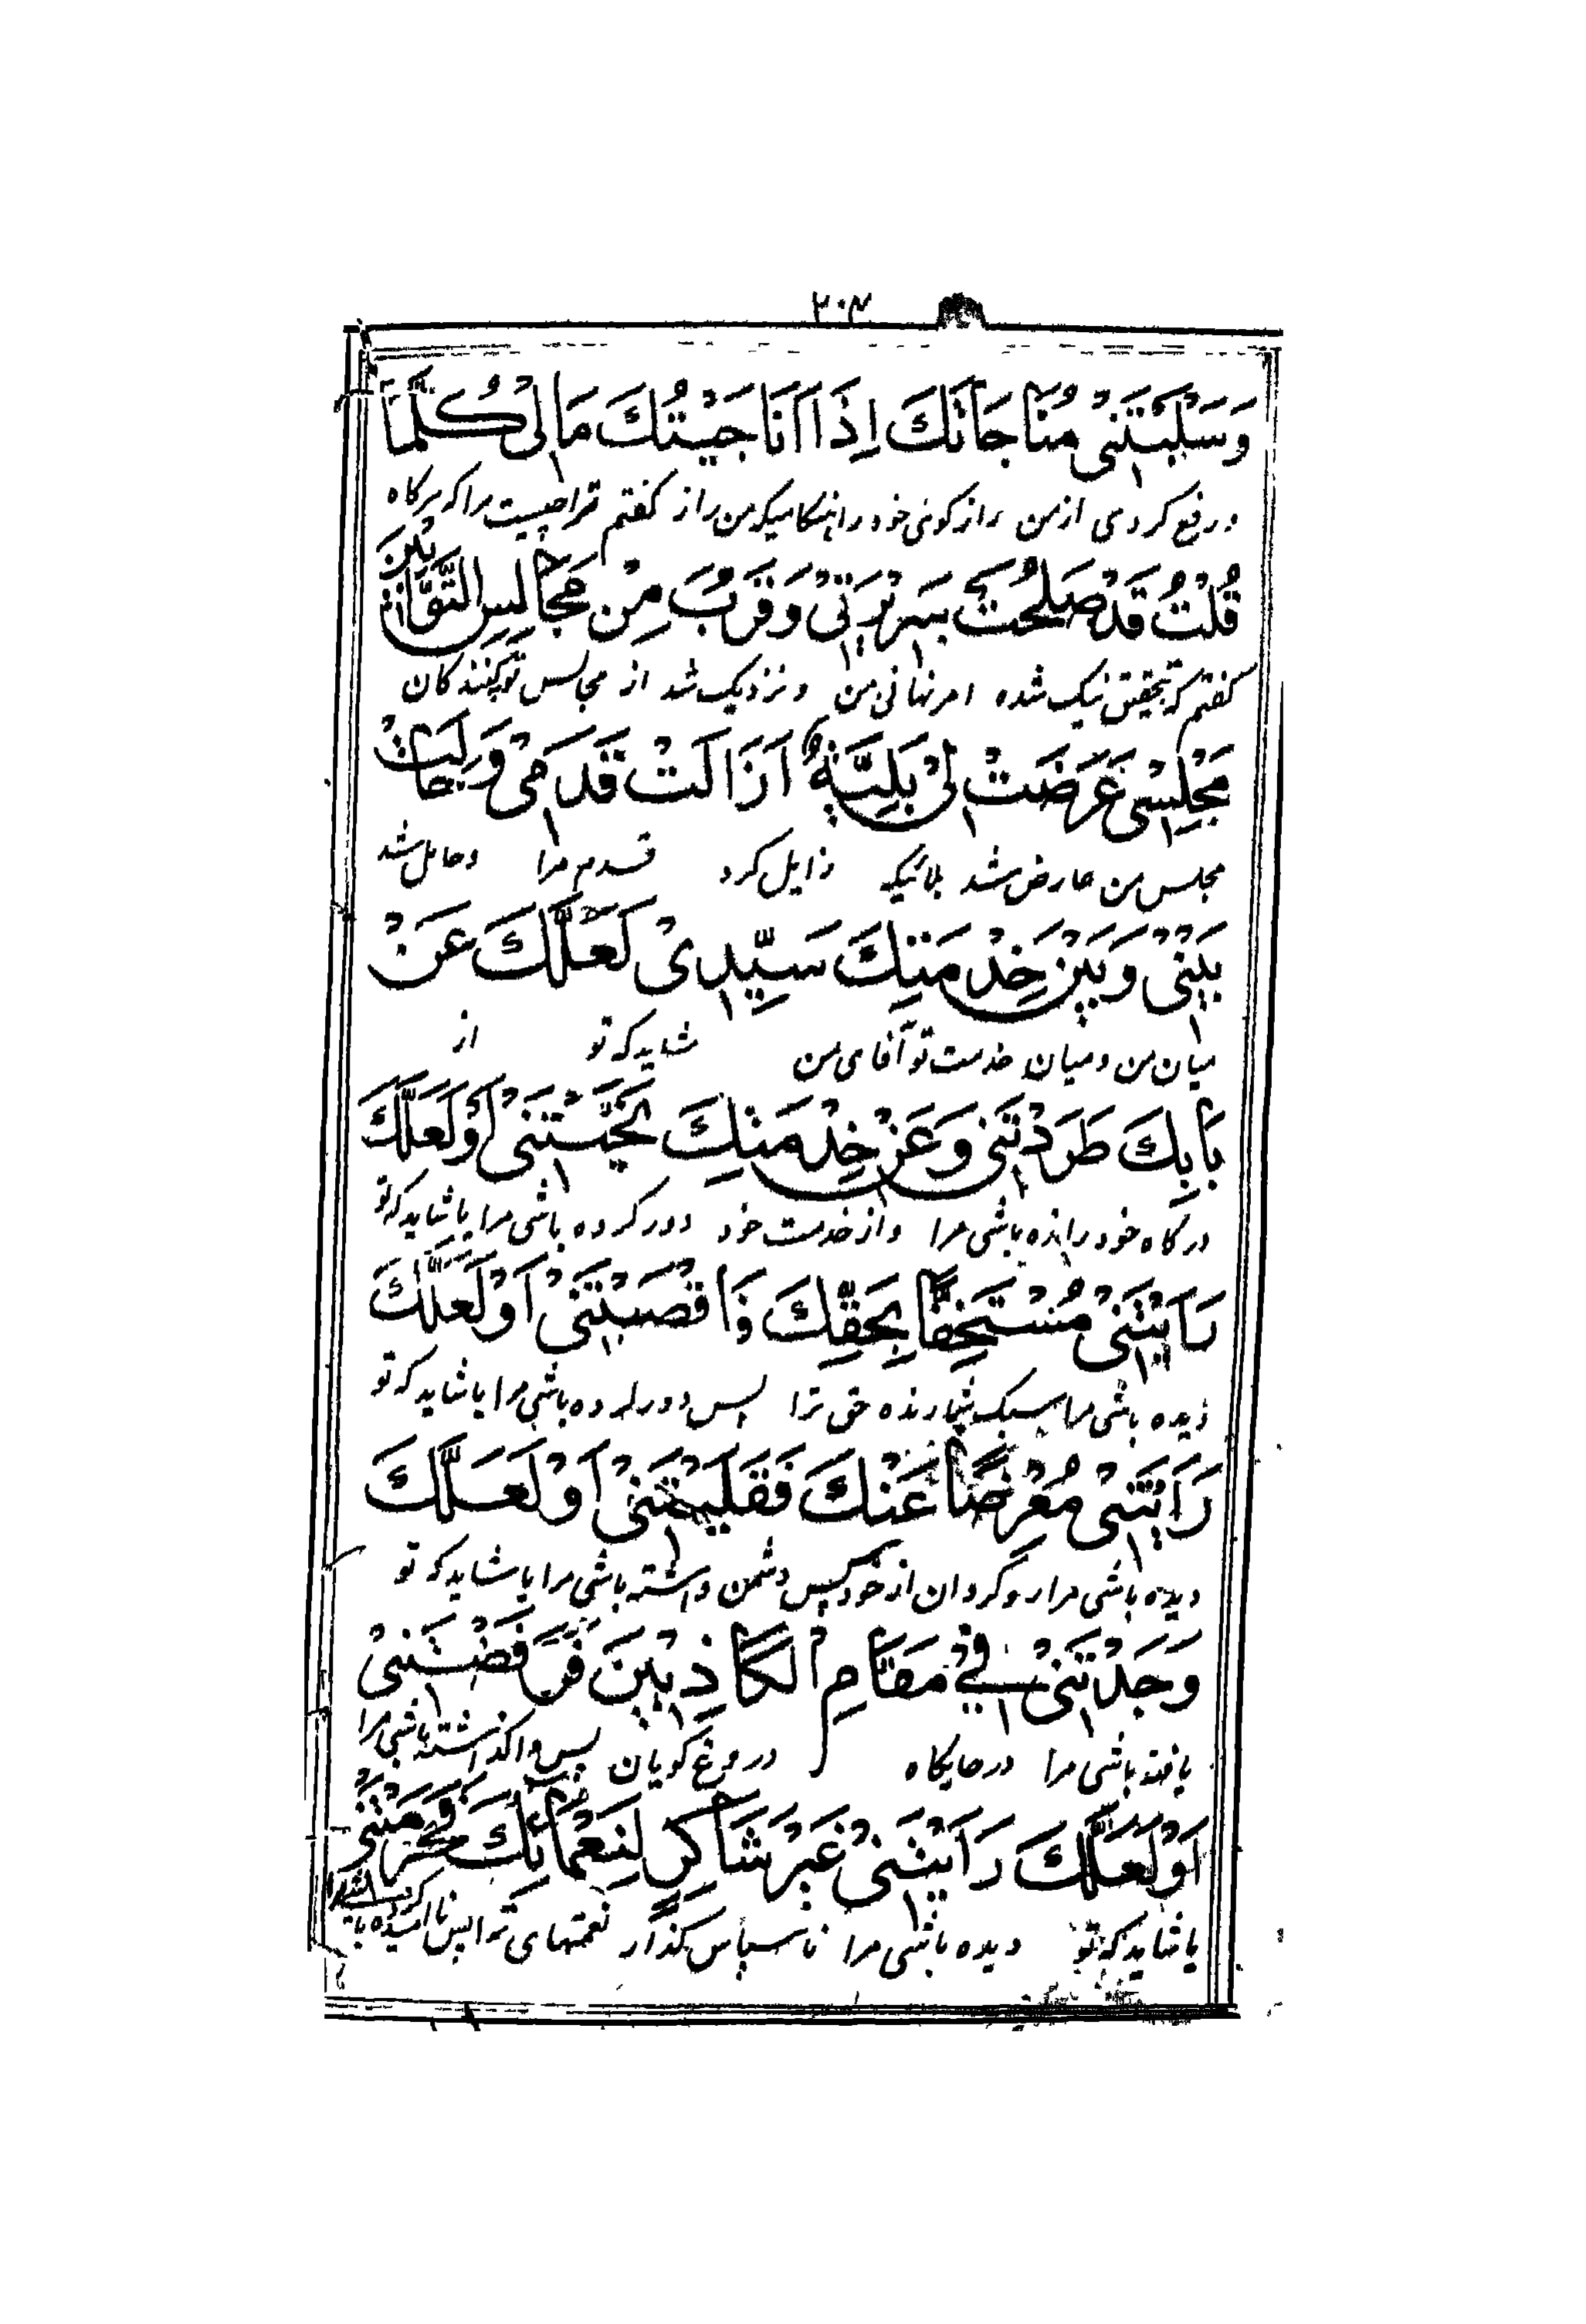 ۲۰۷
وَسَلَبْتَنِیْ مُنَاجَاتَكَ اِذَا اَنَا جَیْتُكَ مَا لِیْ كُلَّمَا
و رفع کردی از من راز کوئی خود را هنکامیکه من راز کفتم ترا چیست مرا که هرکاه
قُلْتُ قَدْ صَلُحَتْ سَرِیْرَتِیْ وَ قَرُبَ مِنْ مَجَالِسِ التَّوَّابِیْنَ
کفتم که بتحقیق نیک شده امر نهانی من و نزدیک شد از مجالس توبه کنندکان
مَجْلِسِیْ عَرَضَتْ لِیْ بَلِیَّةٌ اَزَالَتْ قَدَمِیْ وَ حَالَتْ
مجلس من عارض شد بلائیکه زایل کرد قدم مرا و حایل شد
بَیْنِیْ وَ بَیْنَ خِدْمَتِكَ سَیِّدِیْ لَعَلَّكَ عَنْ
میان من و میان خدمت تو آقای من شاید که تو از
بَابِكَ طَرَدْتَنِیْ وَ عَنْ خِدْمَتِكَ نَحَّیْتَنِیْ اَوْ لَعَلَّكَ
درکاه خود رانده باشی مرا و از خدمت خود دور کرده باشی مرا یا شاید که تو
رَاَیْتَنِیْ مُسْتَخِفًّا بِحَقِّكَ فَاَقْصَیْتَنِیْ اَوْ لَعَلَّكَ
دیده باشی مرا سبک شمارنده حق ترا پس دور کرده باشی مرا یا شاید که تو
رَاَیْتَنِیْ مُعْرِضًا عَنْكَ فَقَلَیْتَنِیْ اَوْ لَعَلَّكَ
دیده باشی مرا رو کردان از خود پس دشمن داشته باشی مرا یا شاید که تو
وَجَدْتَنِیْ فِیْ مَقَامِ الْكَاذِبِیْنَ فَرَفَضْتَنِیْ
یافته باشی مرا در جایکاه دروغ کویان پس واکذاشته باشی مرا
اَوْ لَعَلَّكَ رَاَیْتَنِیْ غَیْرَ شَاكِرٍ لِنَعْمَائِكَ فَحَرَمْتَنِیْ
یا شاید که تو دیده باشی مرا ناسپاس کذار نعمتهای ترا پس نا امید کرده باشی مرا